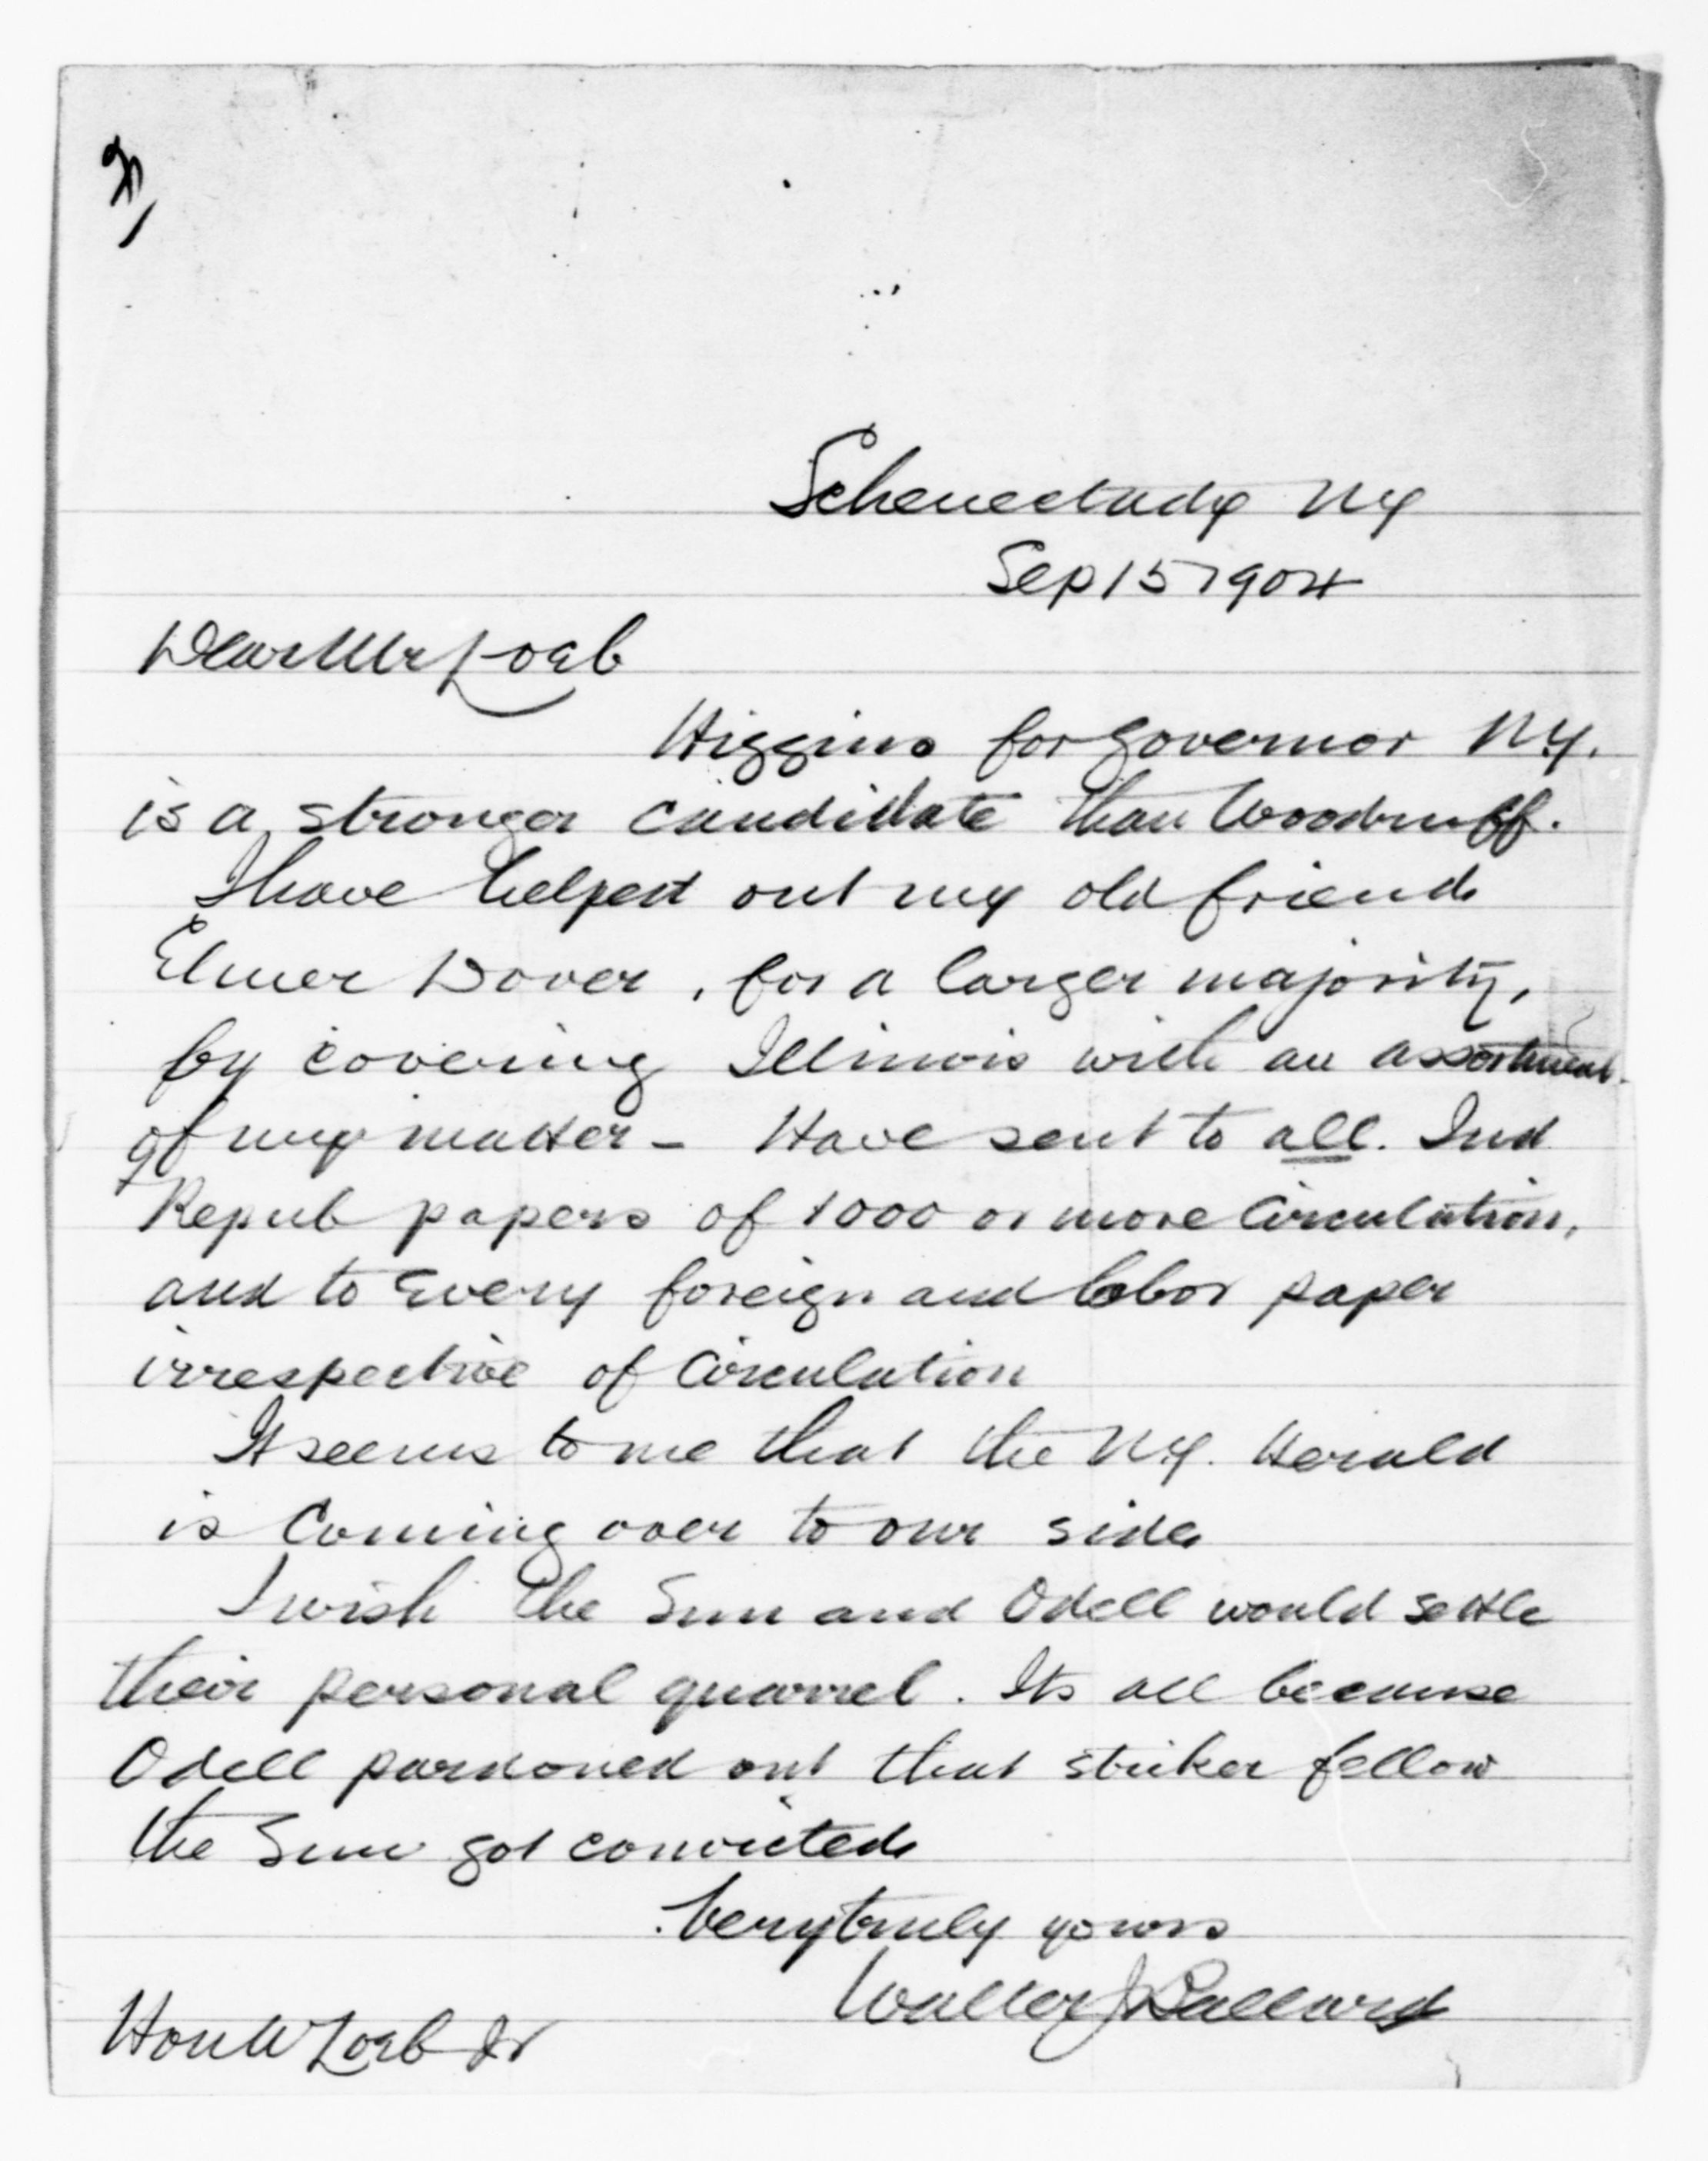 Schenectady NY
Sep 15 1904
Dear Mr Loeb
Higgins for Governor N.Y.
is a stronger candidate than Woodruff.
I have helped out my old friend
Elmer Dover, for a larger majority,
by covering Illinois with an assortment
of my matter - Have sent to all. Ind
Repub papers of 1000 or more Circulation,
and to every foreign and labor paper
irrespective of Circulation
It seems to me that the N.Y. Herald
is Coming over to our side
I wish the Sun and Odell would settle
their personal quarrel. Its all because
Odell pardoned out that striker fellow
the Sun got convicted
Very truly yours
Walter J Ballard
Hon W Loeb Jr